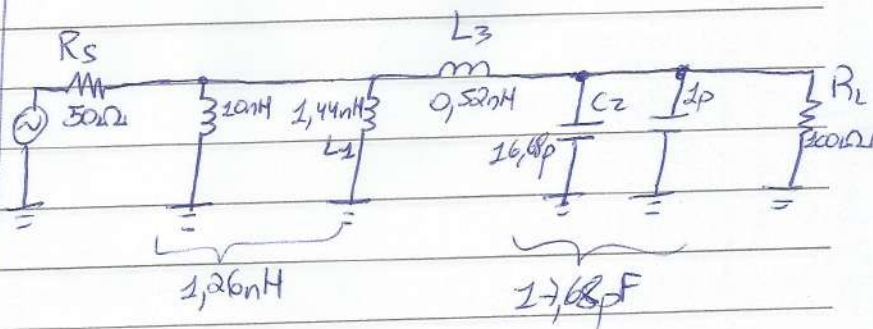 L3
Rs
50Ω
10nH
1,44nH
L1
0,52nH
C2
16,68p
1p
RL
100Ω
1,26nH
17,68pF